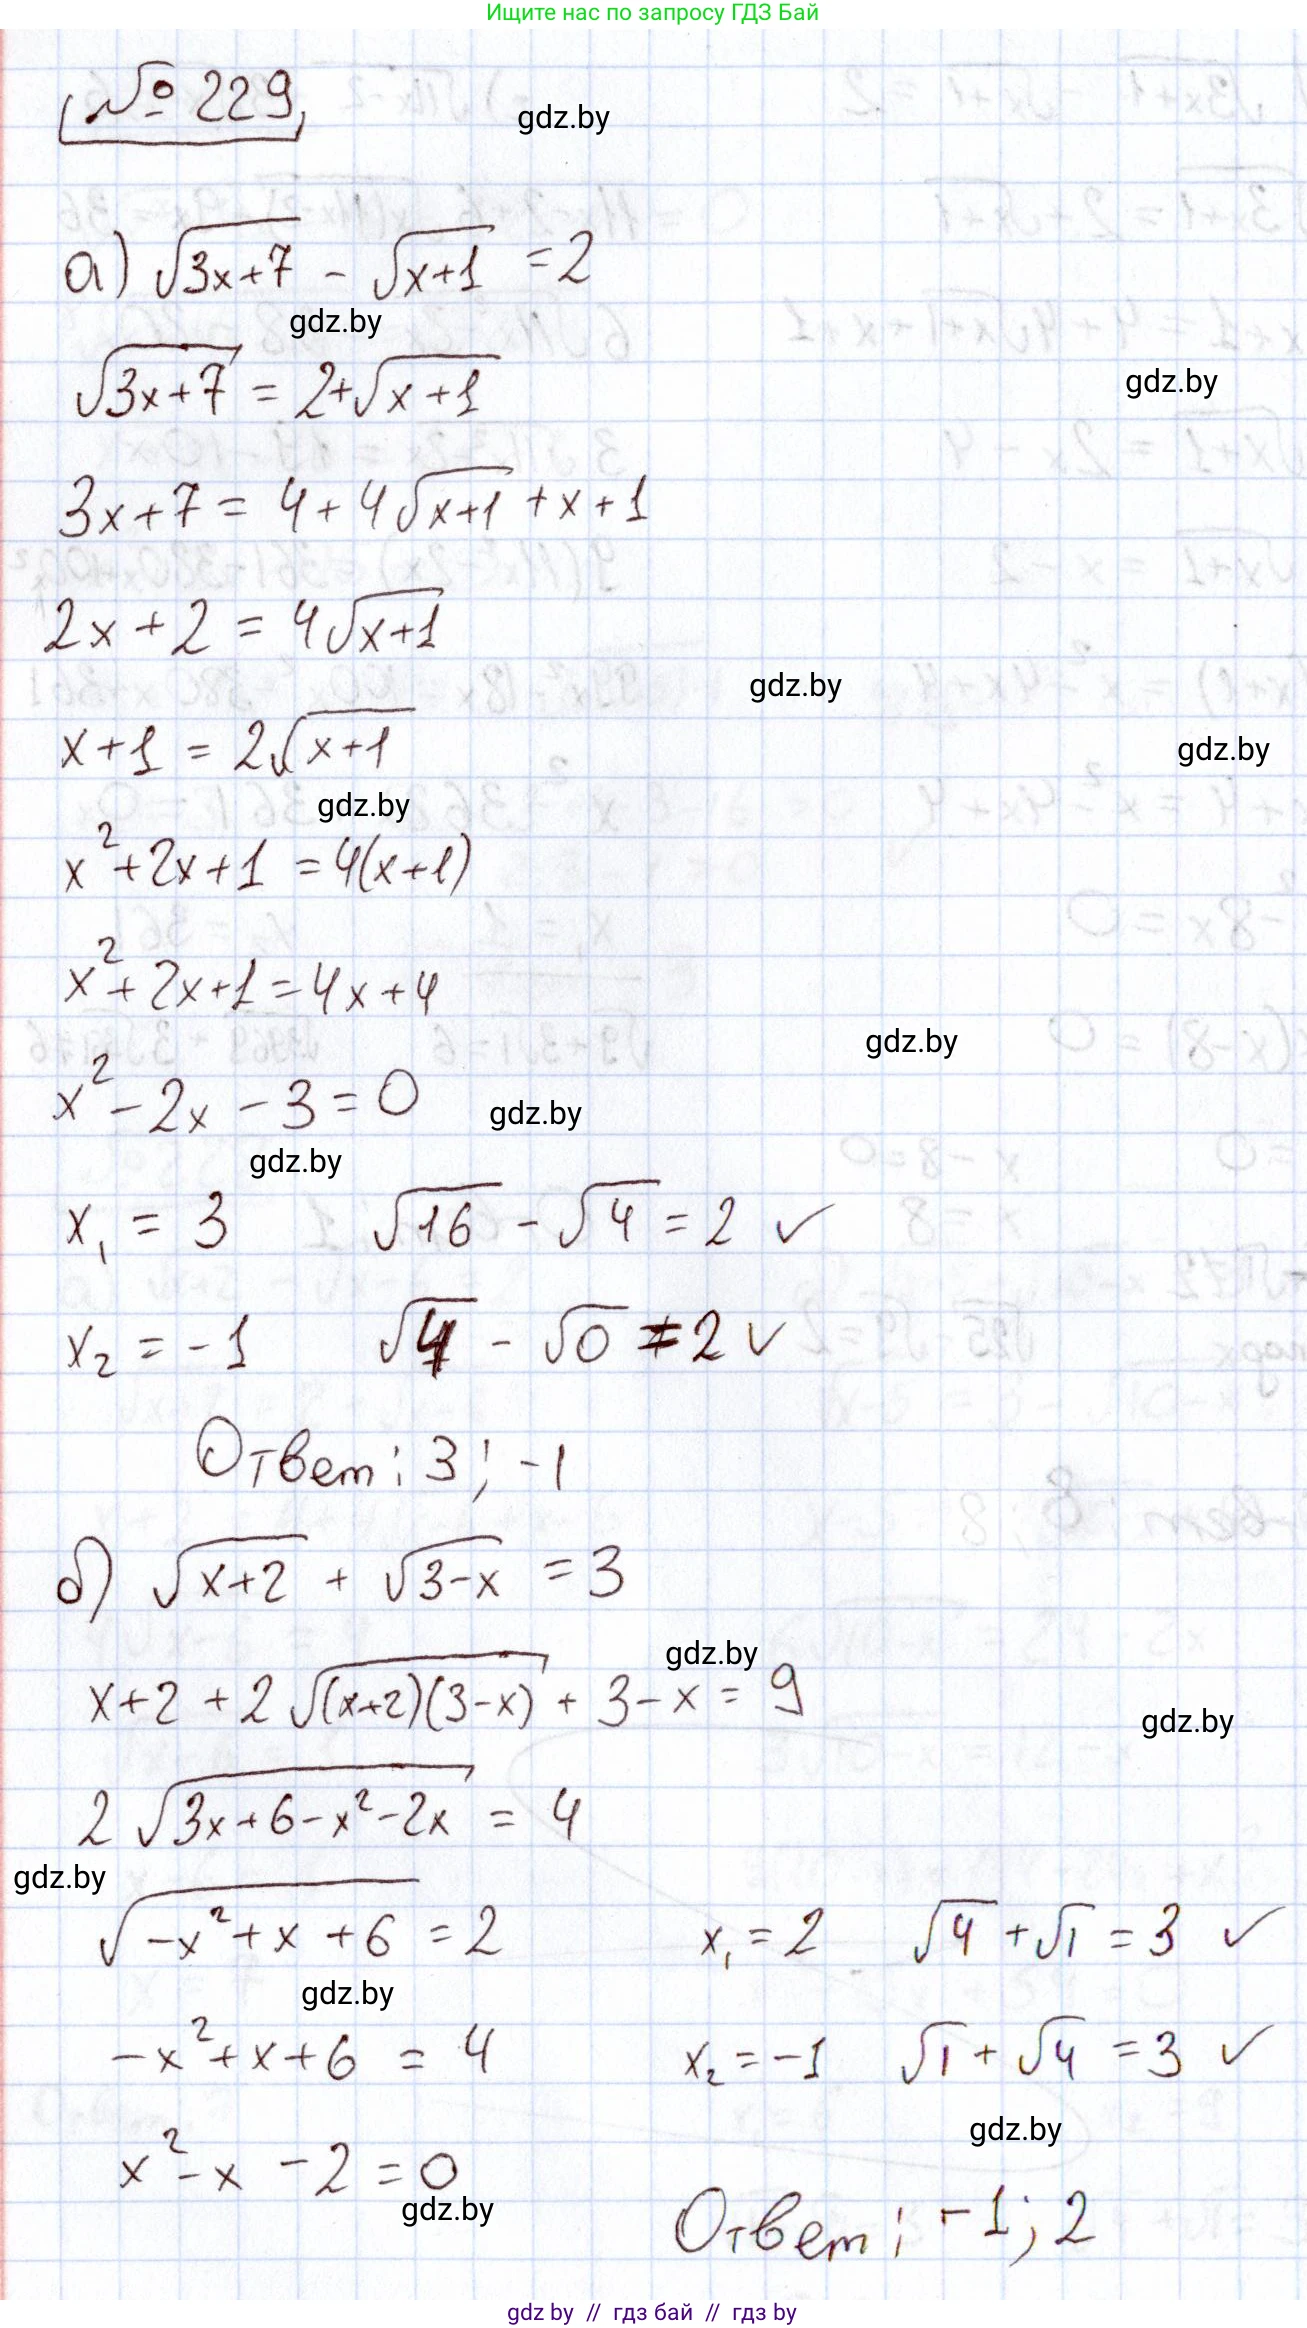 Ищите нас по запросу ГДЗ Бай
№ 229
gdz.by
а) √(3x+7) - √(x+1) = 2
gdz.by
√(3x+7) = 2+√(x+1)
gdz.by
3x+7 = 4+4√(x+1) + x+1
2x+2 = 4√(x+1)
gdz.by
x+1 = 2√(x+1)
gdz.by
gdz.by
x²+2x+1 = 4(x+1)
x²+2x+1 = 4x+4
gdz.by
x² - 2x - 3 = 0
gdz.by
gdz.by
x₁ = 3 √16 - √4 = 2 ✓
x₂ = -1 √4 - √0 = 2 ✓
Ответ: 3; -1
б) √(x+2) + √(3-x) = 3
gdz.by
x+2 + 2√((x+2)(3-x)) + 3-x = 9
gdz.by
2√(3x+6-x²-2x) = 4
gdz.by
√(-x²+x+6) = 2 x₁ = 2 √4 + √1 = 3 ✓
gdz.by
-x²+x+6 = 4 x₂ = -1 √1 + √4 = 3 ✓
gdz.by
x²-x-2 = 0
gdz.by
Ответ: -1; 2
gdz by // гдз бай // гдз by